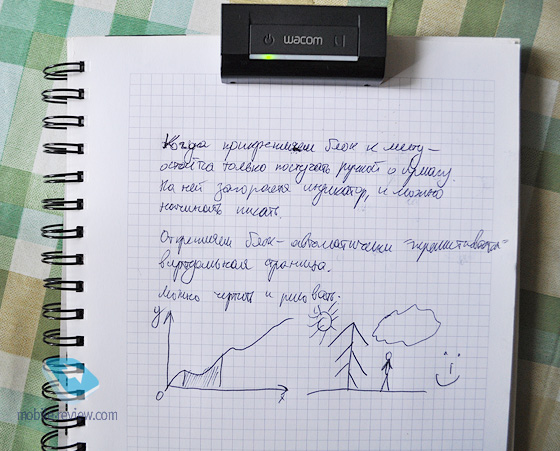 wacom
Когда прикрепляем блок к месту –
остаётся только постучать ручкой о бумагу.
На ней загорается индикатор, и можно
начинать писать.
Открепляем блок – автоматически "перелистывается"
виртуальная страница.
Можно чертить и рисовать.
y
0
x
mobile-review.com